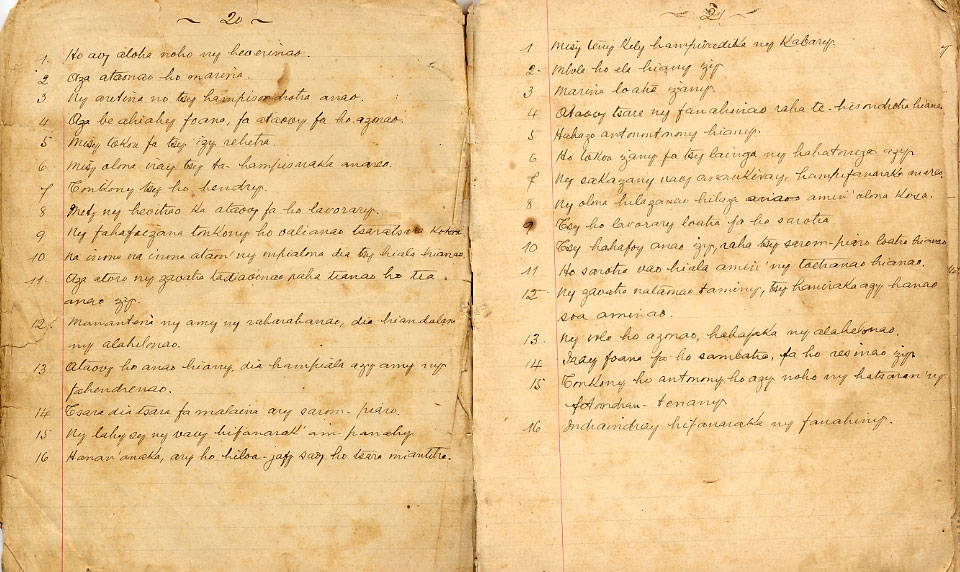 ~ 20 ~
1. Ho avy aloha noho ny heverinao.
2 Aza ataonao ho marina.
3 Ny aretina no tsy hampisondrotra anao.
4 Aza be ahiahy foana, fa ataovy fa ho azonao.
5 Misy tokoa fa tsy izy rehetra.
6. Misy olona vavy tsy ta-hampisaraka anareo.
7 Tonkony tsy ho hendry.
8 Mety ny hevitrao ka ataovy fa ho lavorary.
9 Ny fahafaezana tonkony ho valianao tsaratsara kokoa
10 Na inona na inona atam' ny mpialona dia tsy hiala hianao.
11. Aza atoro ny zavatra tadiavinao raha tianao ho tia
anao izy.
12. Mananteria ny amy ny raharahanao, dia hiandalana
ny alahelonao.
13 Ataovy ho anao hiany, dia hampiala azy amy ny
fahendrenao.
14 Tsara dia tsara fa malaina ary sarom-piaro.
15 Ny lahy sy ny vavy hifanarak' am-panahy.
16 Hanan' anaka, ary ho hiloa-jafy sady ho tsara miantitra.
~ 21 ~
1 Misy teny kely hampivadika ny Kabary.
2- Mbola ho ela hiany izy
3 Marina loatra izany.
4 Ataovy tsara ny fanahinao raha te-hisondrotra hianao
5 Hahazo antonontonony hiany.
6 Ho tokoa izany fa tsy lainga ny hahatonga azy
7 Ny sakaizany vavy akaiky, hampifanaraka anareo
8 Ny olona hilazanao hilaza amin' olona Koxa.
9 Tsy ho lavorary loatra fa ho sarotra
10 Tsy hahafoy anao izy, raha tsy sarom-piaro loatra hianao
11 Ho sarotra vao hiala amin' ny toetranao hianao.
12- Ny zavatra nataonao taminy, tsy hanaraka azy hanao
soa aminao.
13. Ny vola ho azonao, hahafaka ny alahelonao.
14 Iray foana fa ho sambatra, fa ho resinao izy
15 Tonkony ho antonony ho azy noho ny hatsaran' ny
fitondran-tenany
16 Indraindray hifanaraka ny fanahiny.